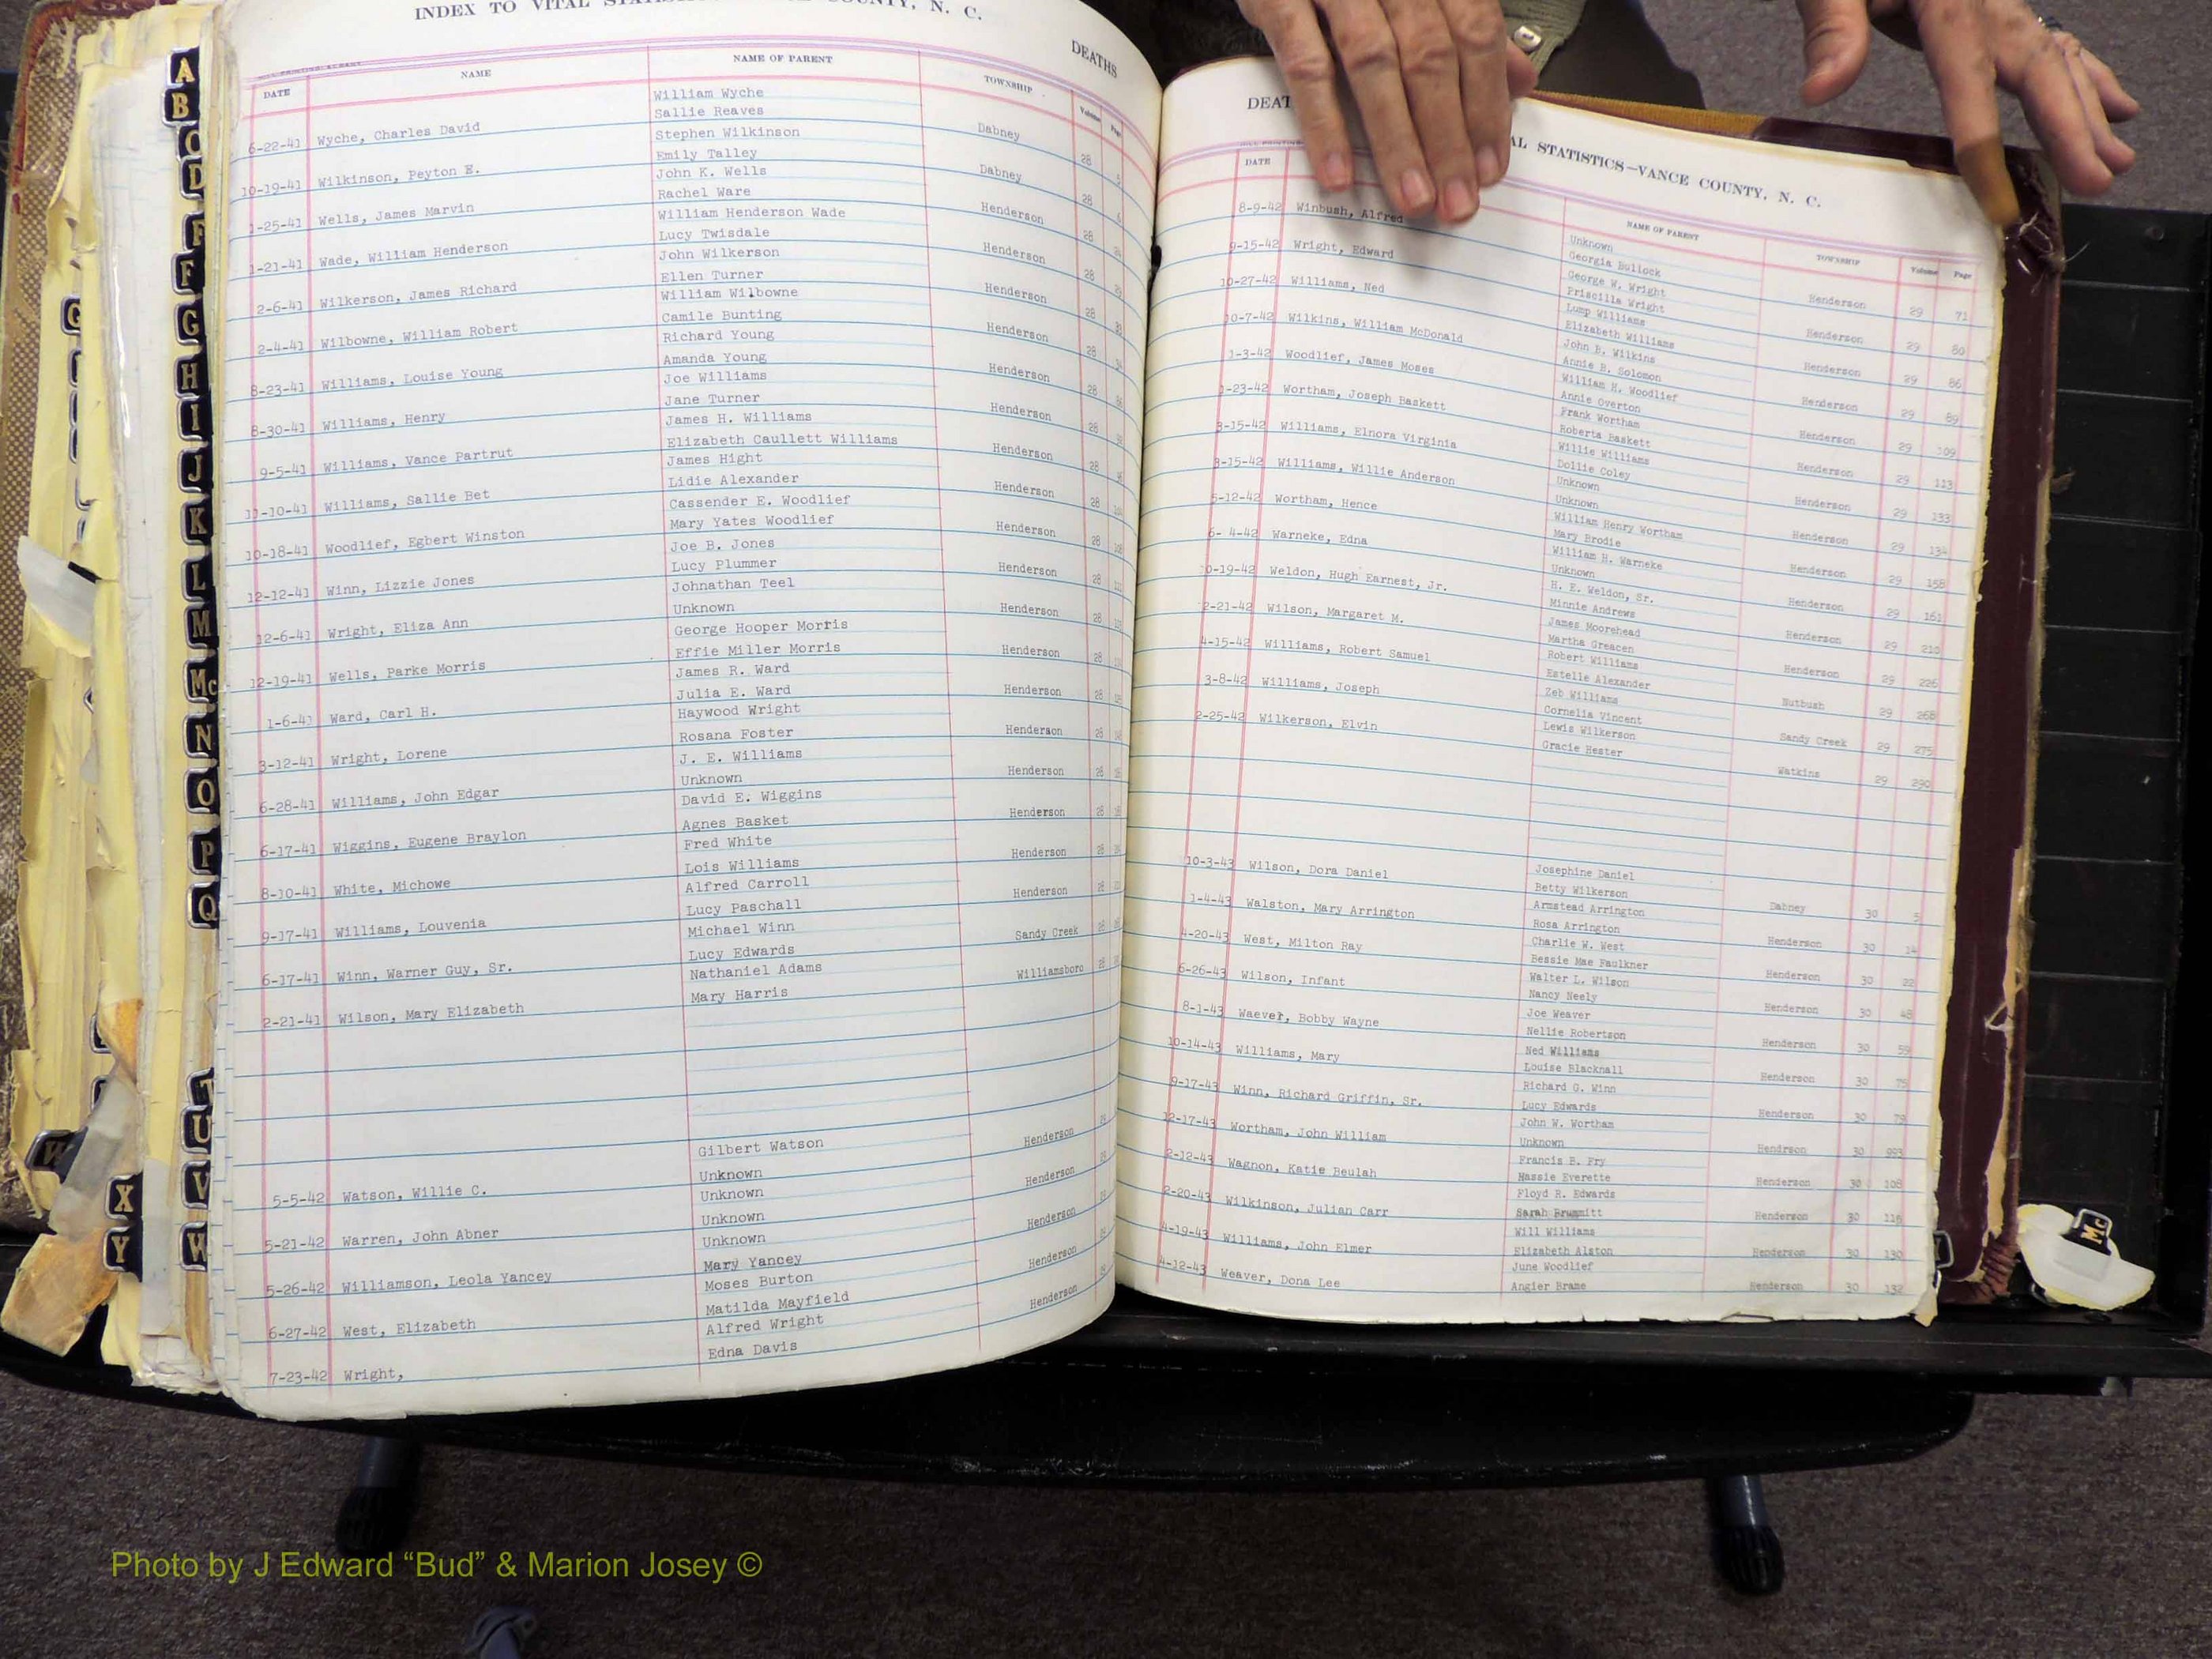 INDEX TO VITAL COUNTY, N. C.
DEATHS
DATE NAME NAME OF PARENT TOWNSHIP Volume Page
William Wyche
6-22-41 Wyche, Charles David Sallie Reaves Dabney 28
Stephen Wilkinson
10-19-41 Wilkinson, Peyton E. Emily Talley Dabney 28
John K. Wells
1-25-41 Wells, James Marvin Rachel Ware Henderson 28
William Henderson Wade
1-21-41 Wade, William Henderson Lucy Twisdale Henderson 28
John Wilkerson
2-6-41 Wilkerson, James Richard Ellen Turner Henderson 28
William Wilbowne
2-4-41 Wilbowne, William Robert Camile Bunting Henderson 28
Richard Young
8-23-41 Williams, Louise Young Amanda Young Henderson 28
Joe Williams
8-30-41 Williams, Henry Jane Turner Henderson 28
James H. Williams
9-5-41 Williams, Vance Partrut Elizabeth Caullett Williams Henderson 28
James Hight
10-41 Williams, Sallie Bet Lidie Alexander Henderson 28
Cassender E. Woodlief
10-18-41 Woodlief, Egbert Winston Mary Yates Woodlief Henderson 28
Joe B. Jones
12-12-41 Winn, Lizzie Jones Lucy Plummer Henderson 28
Johnathan Teel
12-6-41 Wright, Eliza Ann Unknown Henderson 28
George Hooper Morris
12-19-41 Wells, Parke Morris Effie Miller Morris Henderson 28
James R. Ward
1-6-41 Ward, Carl H. Julia E. Ward Henderson 28
Haywood Wright
3-12-41 Wright, Lorene Rosana Foster Henderson 28
J. E. Williams
6-28-41 Williams, John Edgar Unknown Henderson 28
David E. Wiggins
6-17-41 Wiggins, Eugene Braylon Agnes Basket Henderson 28
Fred White
8-10-41 White, Michowe Lois Williams Henderson 28
Alfred Carroll
9-17-41 Williams, Louvenia Lucy Paschall Henderson 28
Michael Winn
6-17-41 Winn, Warner Guy, Sr. Lucy Edwards Sandy Creek 28
Nathaniel Adams
2-21-41 Wilson, Mary Elizabeth Mary Harris Williamsboro 28
Gilbert Watson
5-5-42 Watson, Willie C. Unknown Henderson
Unknown
5-21-42 Warren, John Abner Unknown Henderson
Unknown
5-26-42 Williamson, Leola Yancey Mary Yancey Henderson
Moses Burton
6-27-42 West, Elizabeth Matilda Mayfield Henderson
Alfred Wright
7-23-42 Wright, Edna Davis Henderson
DEAT
AL STATISTICS—VANCE COUNTY, N. C.
DATE NAME OF PARENT TOWNSHIP Volume Page
Unknown
8-9-42 Winbush, Alfred Georgia Bullock Henderson 29 71
George W. Wright
9-15-42 Wright, Edward Priscilla Wright Henderson 29 80
Lump Williams
10-27-42 Williams, Ned Elizabeth Williams Henderson 29 86
John B. Wilkins
10-7-42 Wilkins, William McDonald Annie B. Solomon Henderson 29 89
William H. Woodlief
1-3-42 Woodlief, James Moses Annie Overton Henderson 29 109
Frank Wortham
1-23-42 Wortham, Joseph Baskett Roberta Baskett Henderson 29 113
Willie Williams
3-15-42 Williams, Elnora Virginia Dollie Coley Henderson 29 133
Unknown
3-15-42 Williams, Willie Anderson Unknown Henderson 29
William Henry Wortham
5-12-42 Wortham, Hence Mary Brodie Henderson 29 158
William H. Warneke
6- 4-42 Warneke, Edna Unknown Henderson 29 161
H. E. Weldon, Sr.
10-19-42 Weldon, Hugh Earnest, Jr. Minnie Andrews Henderson 29 210
James Moorehead
2-21-42 Wilson, Margaret M. Martha Greacen Henderson 29 226
Robert Williams
4-15-42 Williams, Robert Samuel Estelle Alexander Nutbush 29 268
Zeb Williams
3-8-42 Williams, Joseph Cornelia Vincent Sandy Creek 29 275
Lewis Wilkerson
2-25-42 Wilkerson, Elvin Gracie Hester Watkins 29 290
Josephine Daniel
10-3-43 Wilson, Dora Daniel Betty Wilkerson Dabney 30 5
Armstead Arrington
1-4-43 Walston, Mary Arrington Rosa Arrington Henderson 30 14
Charlie W. West
4-20-43 West, Milton Ray Bessie Mae Faulkner Henderson 30 22
Walter L. Wilson
6-26-43 Wilson, Infant Nancy Neely Henderson 30 48
Joe Weaver
8-1-43 Waever, Bobby Wayne Nellie Robertson Henderson 30 59
Ned Williams
10-14-43 Williams, Mary Louise Blacknall Henderson 30 75
Richard G. Winn
9-17-43 Winn, Richard Griffin, Sr. Lucy Edwards Henderson 30 79
John W. Wortham
12-17-43 Wortham, John William Unknown Hendrson 30
Francis B. Fry
2-12-43 Wagnon, Katie Beulah Hassie Everette Henderson 30 108
Floyd R. Edwards
2-20-43 Wilkinson, Julian Carr Sarah Brummitt Henderson 30 116
Will Williams
4-19-43 Williams, John Elmer Elizabeth Alston Henderson 30 130
June Woodlief
4-12-43 Weaver, Dona Lee Angier Brame Henderson 30 132
A
B
C
D
F
F
G
G
H
I
J
K
L
M
Mc
N
O
P
Q
T
U
V
W
W
X
Y
Mc
Photo by J Edward “Bud” & Marion Josey ©